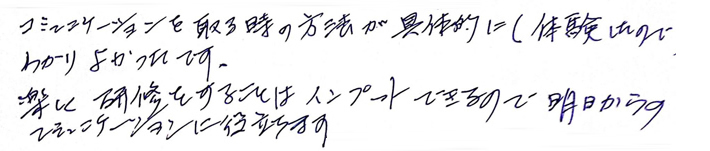 コミュニケーションを取る時の方法が具体的に(体験したので
わかりよかったです。
楽しく研修をすることはインプットできるので明日からの
コミュニケーションに役立ちます